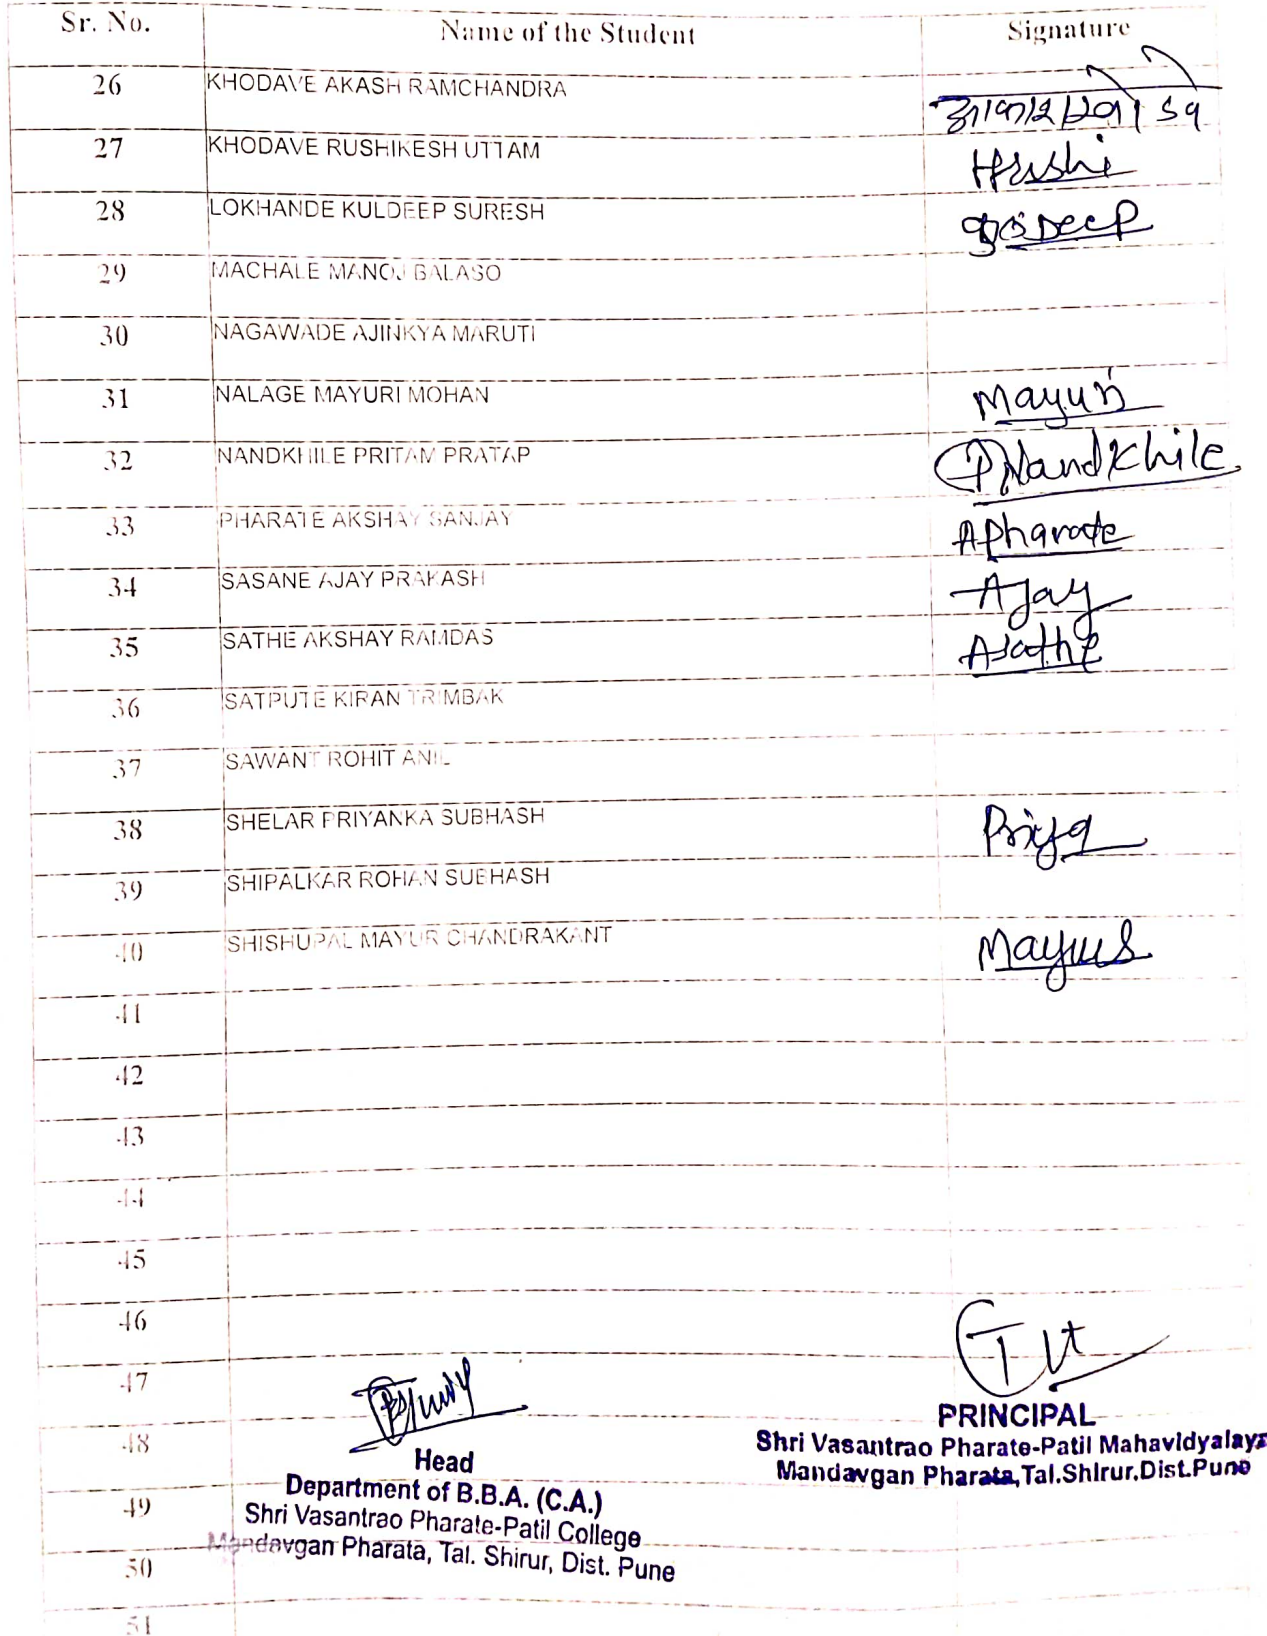 Sr. No. Name of the Student Signature
26 KHODAVE AKASH RAMCHANDRA
27 KHODAVE RUSHIKESH UTTAM Hrushi
28 LOKHANDE KULDEEP SURESH
29 MACHALE MANOJ BALASO
30 NAGAWADE AJINKYA MARUTI
31 NALAGE MAYURI MOHAN Mayuri
32 NANDKHILE PRITAM PRATAP PNandkhile
33 PHARATE AKSHAY SANJAY APharate
34 SASANE AJAY PRAKASH Ajay
35 SATHE AKSHAY RAMDAS Asathe
36 SATPUTE KIRAN TRIMBAK
37 SAWANT ROHIT ANIL
38 SHELAR PRIYANKA SUBHASH Priya
39 SHIPALKAR ROHAN SUBHASH
40 SHISHUPAL MAYUR CHANDRAKANT MayurS
41
42
43
44
45
46
47
48
49
50
51
Head
Department of B.B.A. (C.A.)
Shri Vasantrao Pharate-Patil College
Mandavgan Pharata, Tal. Shirur, Dist. Pune
PRINCIPAL
Shri Vasantrao Pharate-Patil Mahavidyalaya
Mandavgan Pharata,Tal.Shirur.Dist.Pune